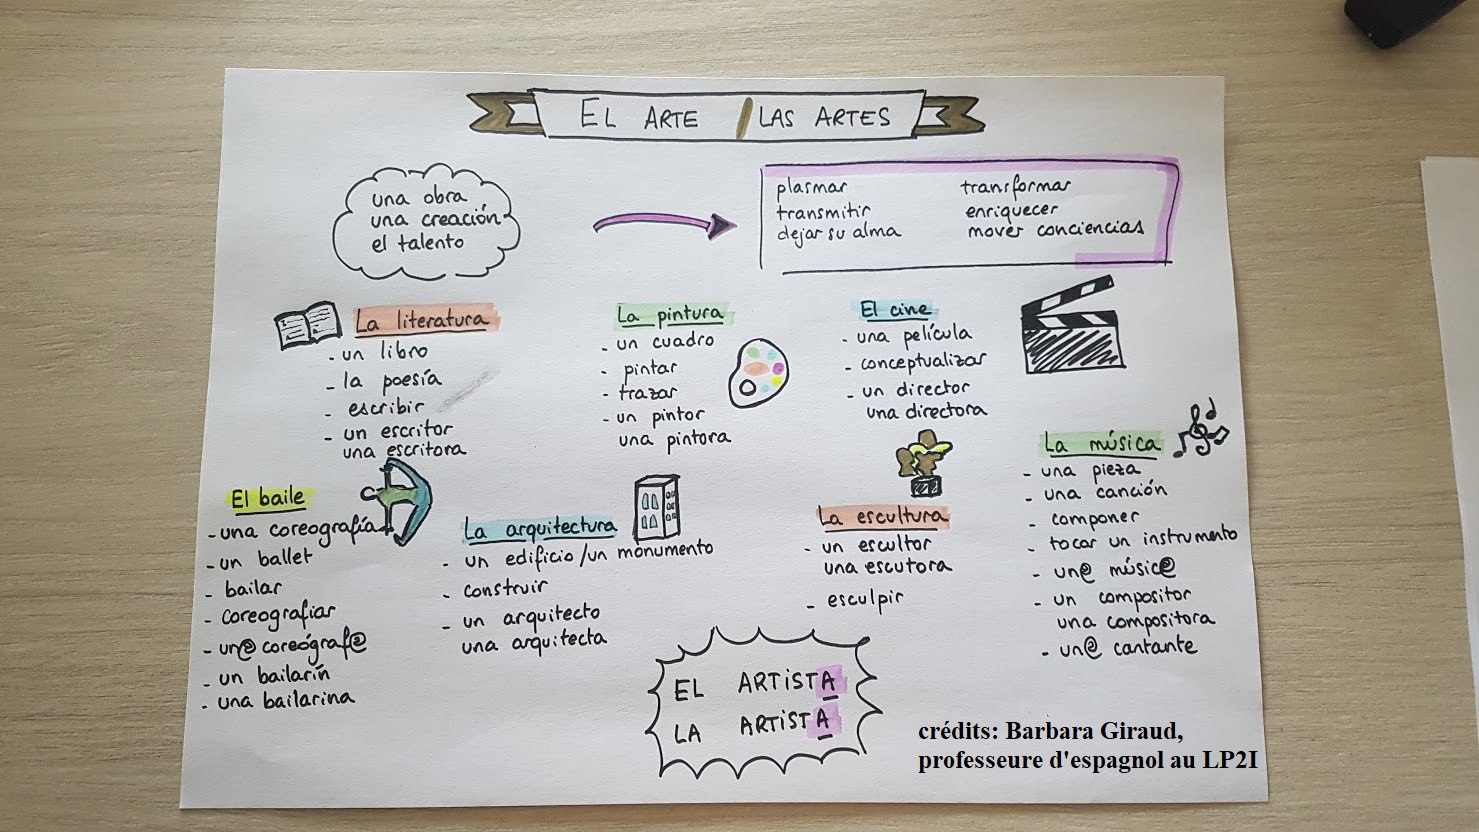 EL ARTE / LAS ARTES
una obra
una creación
el talento
plasmar
transmitir
dejar su alma
transformar
enriquecer
mover conciencias
La literatura
- un libro
- la poesía
- escribir
- un escritor
una escritora
La pintura
- un cuadro
- pintar
- trazar
- un pintor
una pintora
El cine
- una película
- conceptualizar
- un director
una directora
La música
- una pieza
- una canción
- componer
- tocar un instrumento
- un@ músic@
- un compositor
una compositora
- un@ cantante
El baile
- una coreografía
- un ballet
- bailar
- coreografiar
- un@ coreógraf@
- un bailarín
- una bailarina
La arquitectura
- un edificio/un monumento
- construir
- un arquitecto
una arquitecta
La escultura
- un escultor
una escutora
- esculpir
EL ARTiSTA
LA ARTiSTA
crédits: Barbara Giraud,
professeure d'espagnol au LP2I